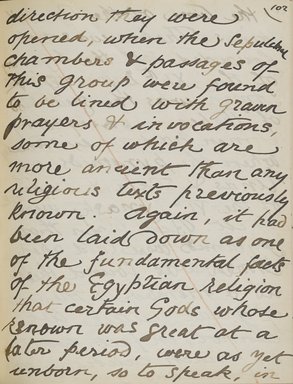 102
direction they were
opened, when the sepulchral
chambers & passages of
this group were found
to be lined with graven
prayers & invocations,
some of which are
more ancient than any
religious texts previously
known. Again, it had
been laid down as one
of the fundamental facts
of the Egyptian religion
that certain Gods whose
renown was great at a
later period, were as yet
unborn, so to speak, in